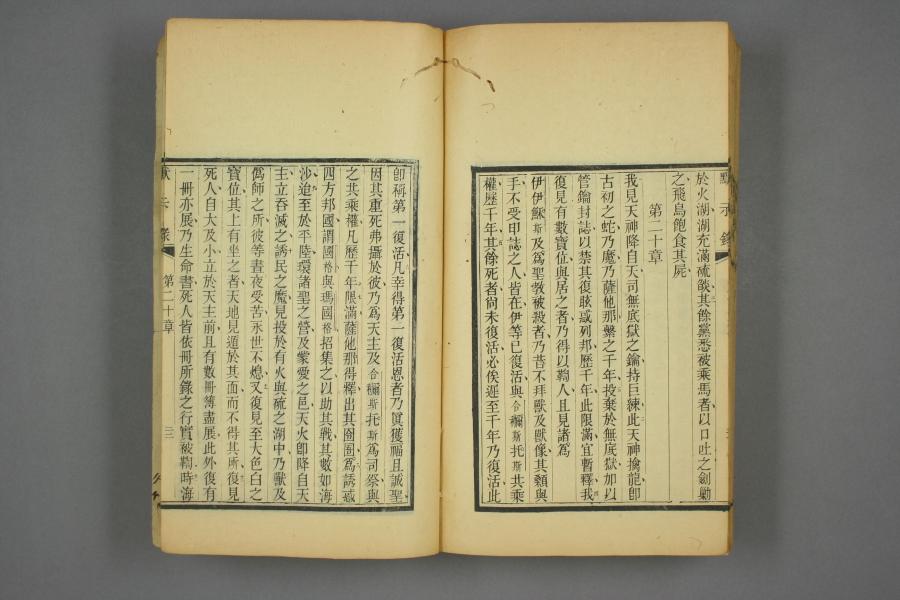 於火湖湖充滿硫燄其餘黨悉被乘馬者以口吐之劍勦
之飛鳥飽食其屍
第二十章
我見天神降自天司無底獄之鑰持巨鍊此天神擒龍卽
古初之蛇乃魔乃薩他那繫之千年投棄於無底獄加以
管鑰封誌以禁其復眩惑列邦歷千年此限滿宜暫釋我
復見有數寶位與居之者乃得以鞫人且見諸爲
伊伊穌斯及爲聖教被殺者乃昔不拜獸及獸像其額與
手不受印誌之人皆在伊等已復活與合禰斯托斯其乘
權歷千年其餘死者尚未復活必俟遲至千年乃復活此
默示錄
卽稱第一復活凡幸得第一復活恩者乃眞獲福且誠聖
因其重死弗攝於彼乃爲天主及合禰斯托斯爲司祭與
之共乘權凡歷千年限滿薩他那得釋出其囹圄爲誘惑
四方邦國謂國格與瑪國格招集之以助其戰其數如海
沙迨至於平陸環諸聖之營及蒙愛之邑天火卽降自天
主立吞滅之誘民之魔見投於有火與硫之湖中乃獸及
僞師之所彼等晝夜受苦永世不熄又復見至大色白之
寶位其上有坐之者天地見遁於其面而不得其所復見
死人自大及小立於天主前且有數冊簿盡展此外復有
一冊亦展乃生命書死人皆依冊所錄之行實被鞫時海
默示錄
第二十章
三